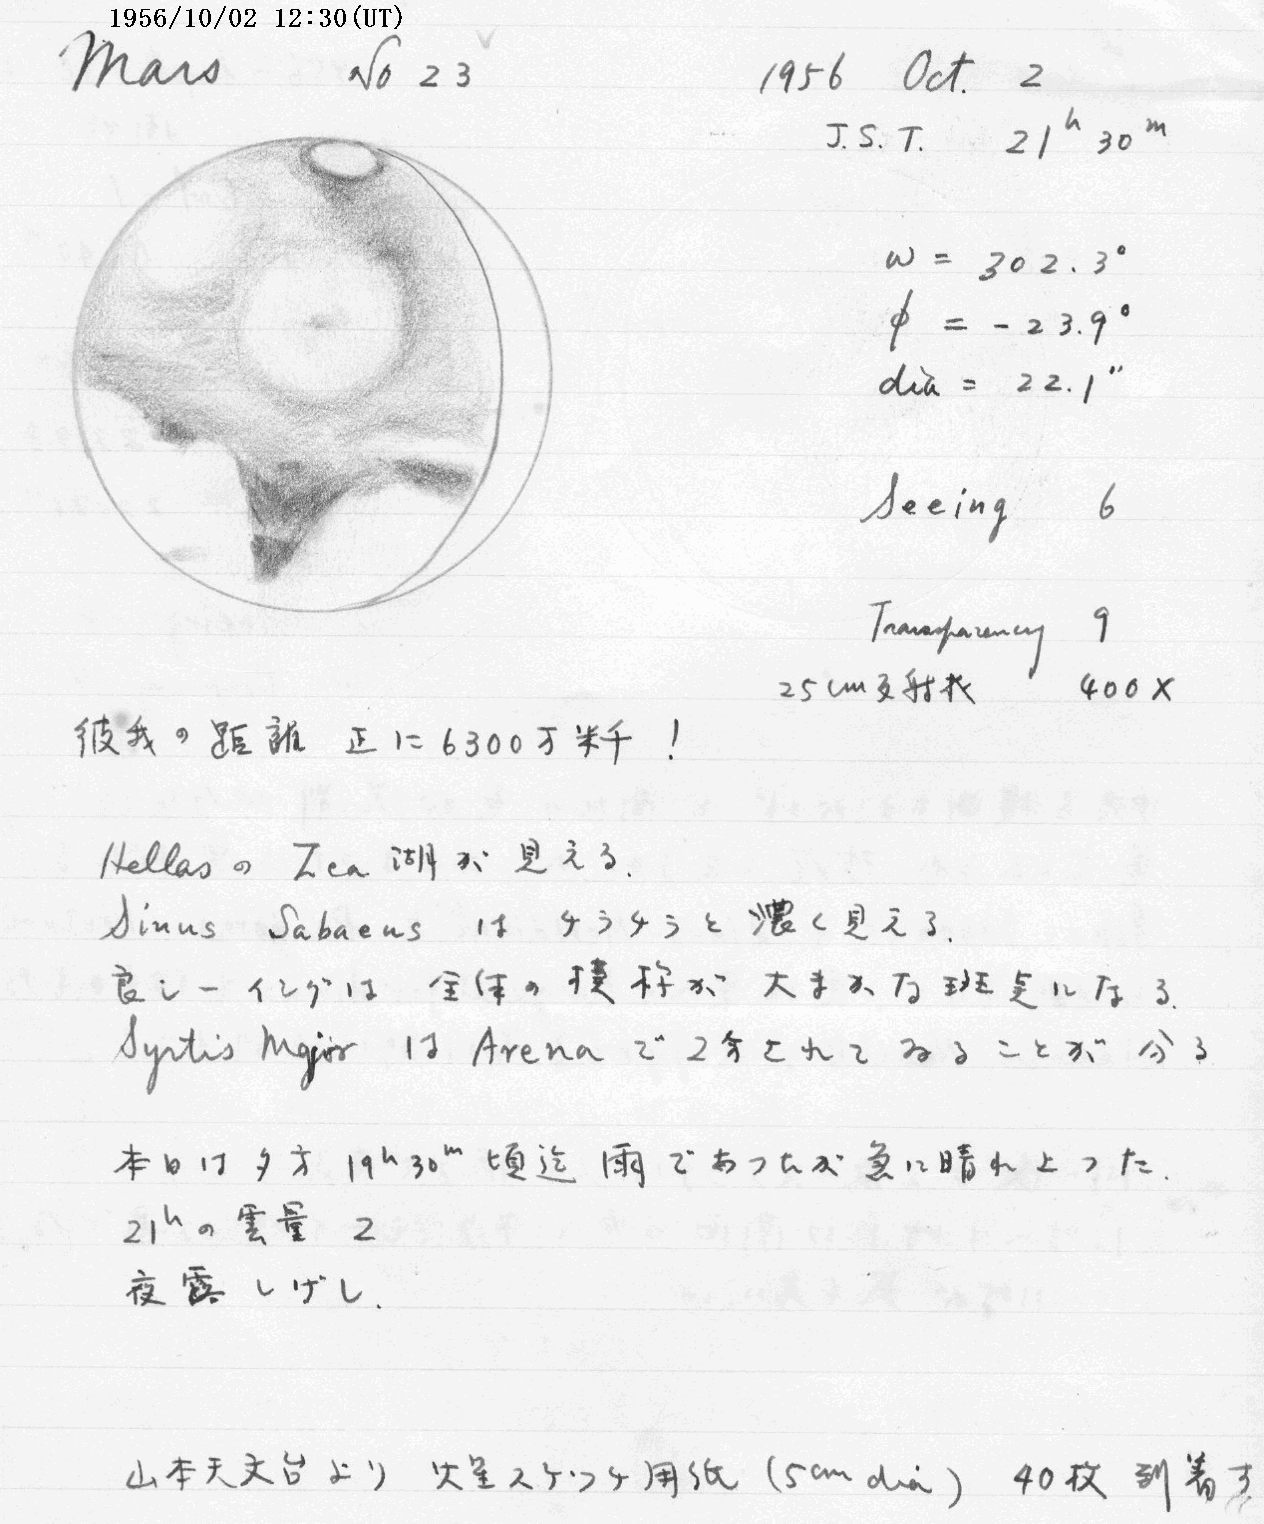 1956/10/02 12:30(UT)
Mars No 23
1956 Oct. 2
J.S.T. 21h 30m
ω = 302.3°
φ = -23.9°
dia = 22.1"
Seeing 6
Transparency 9
25cm反射 400X
彼我の距離 正に6300万粁!
Hellasの Zea湖が見える.
Sinus Sabaeus はチラチラと濃く見える.
良シーイングは 全体の模様が 大まかな斑点になる.
Syrtis Major は Arena で2分されてゐることが分る
本日は夕方 19h30m 頃迄 雨であったが 急に晴れ上った.
21hの雲量 2
夜露しげし.
山本天文台より 火星スケッチ用紙 (5cm dia) 40枚 到着す